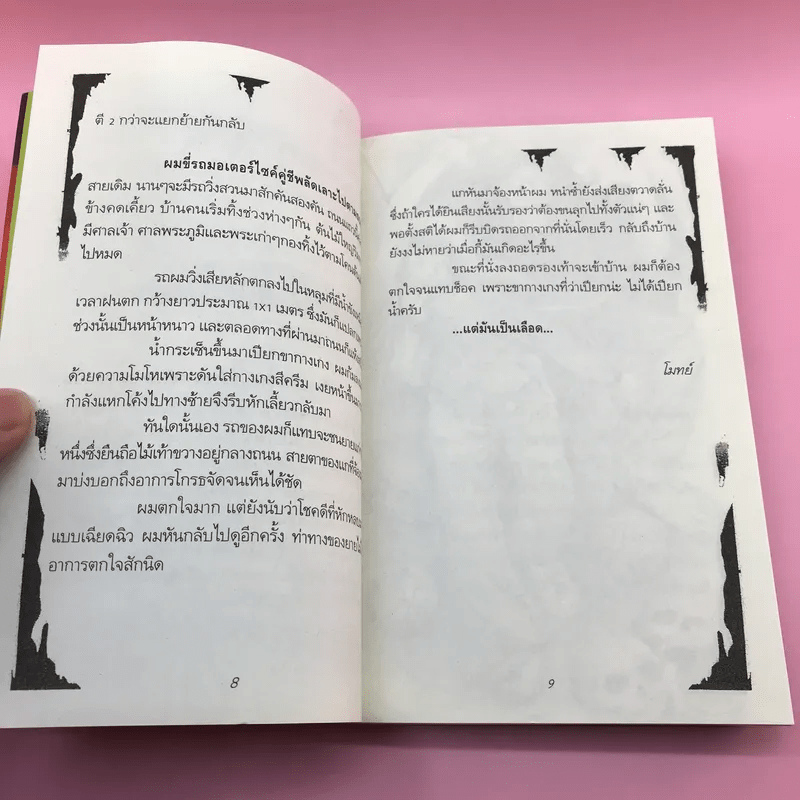 ตี 2 กว่าจะแยกย้ายกันกลับ
ผมขี่รถมอเตอร์ไซค์คู่ชีพลัดเลาะไปตาม
สายเดิม นานๆจะมีรถวิ่งสวนมาสักคันสองคัน ถนน
ข้างคดเคี้ยว บ้านคนเริ่มทิ้งช่วงห่างๆกัน ต้นไม้ใหญ่
มีศาลเจ้า ศาลพระภูมิและพระเก่าๆกองทิ้งไว้ตามโคนต้น
ไปหมด
รถผมวิ่งเสียหลักตกลงไปในหลุมที่มีน้ำ
เวลาฝนตก กว้างยาวประมาณ 1X1 เมตร ซึ่งมันก็แปลก
ช่วงนั้นเป็นหน้าหนาว และตลอดทางที่ผ่านมาถนนก็แห้ง
น้ำกระเซ็นขึ้นมาเปียกขากางเกง ผมก้ม
ด้วยความโมโหเพราะดันใส่กางเกงสีครีม เงยหน้าขึ้น
กำลังแหกโค้งไปทางซ้ายจึงรีบหักเลี้ยวกลับมา
ทันใดนั้นเอง รถของผมก็แทบจะชนยาย
หนึ่งซึ่งยืนถือไม้เท้าขวางอยู่กลางถนน สายตาของแกที่จ้อง
มาบ่งบอกถึงอาการโกรธจัดจนเห็นได้ชัด
ผมตกใจมาก แต่ยังนับว่าโชคดีที่หักหลบ
แบบเฉียดฉิว ผมหันกลับไปดูอีกครั้ง ท่าทางของยาย
อาการตกใจสักนิด
8
แกหันมาจ้องหน้าผม หนำซ้ำยังส่งเสียงตวาดลั่น
ซึ่งถ้าใครได้ยินเสียงนั้นรับรองว่าต้องขนลุกไปทั้งตัวแน่ๆ และ
พอตั้งสติได้ผมก็รีบบิดรถออกจากที่นั่นโดยเร็ว กลับถึงบ้าน
ยังงงไม่หายว่าเมื่อกี้มันเกิดอะไรขึ้น
ขณะที่นั่งลงถอดรองเท้าจะเข้าบ้าน ผมก็ต้อง
ตกใจจนแทบช็อค เพราะขากางเกงที่ว่าเปียกน่ะ ไม่ได้เปียก
น้ำครับ
...แต่มันเป็นเลือด...
โมทย์
9